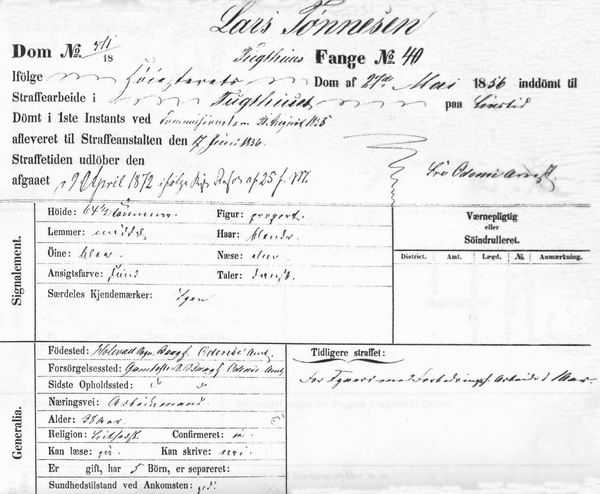 Lars Tönnesen
Dom No. 18 Tugthuus Fange No 40
Ifölge Höiesterets Dom af 27de Mai 1856 inddömt til
Straffearbeide i Tugthuset paa Livstid
Dömt i 1ste Instants ved
afleveret til Straffeanstalten den 17 Juni 1856.
Straffetiden udlöber den
afgaaet 9 April 1872 ifölge af 25 f. M.
Fra Odense Amt
Signalement.
Höide: 64½ Tommer. Figur: propert.
Lemmer: Haar: blondt
Öine: blaa Næse: alm
Ansigtsfarve: sund Taler: dansk
Særdeles Kjendemærker: Ingen
Værnepligtig
eller
Söindrulleret.
District. Amt. Lægd. No. Anmærkning.
Generalia.
Födested: Odense Amt
Forsörgelsessted: Odense Amt
Sidste Opholdssted:
Næringsvei: Arbeidsmand
Alder: 38 Aar
Religion: Confirmeret:
Kan læse: Kan skrive: nei
Er gift, har 5 Börn, er separeret:
Sundhedstilstand ved Ankomsten: god.
Tidligere straffet:
For Tyveri med Forbedringsh. Arbeide i Aar.